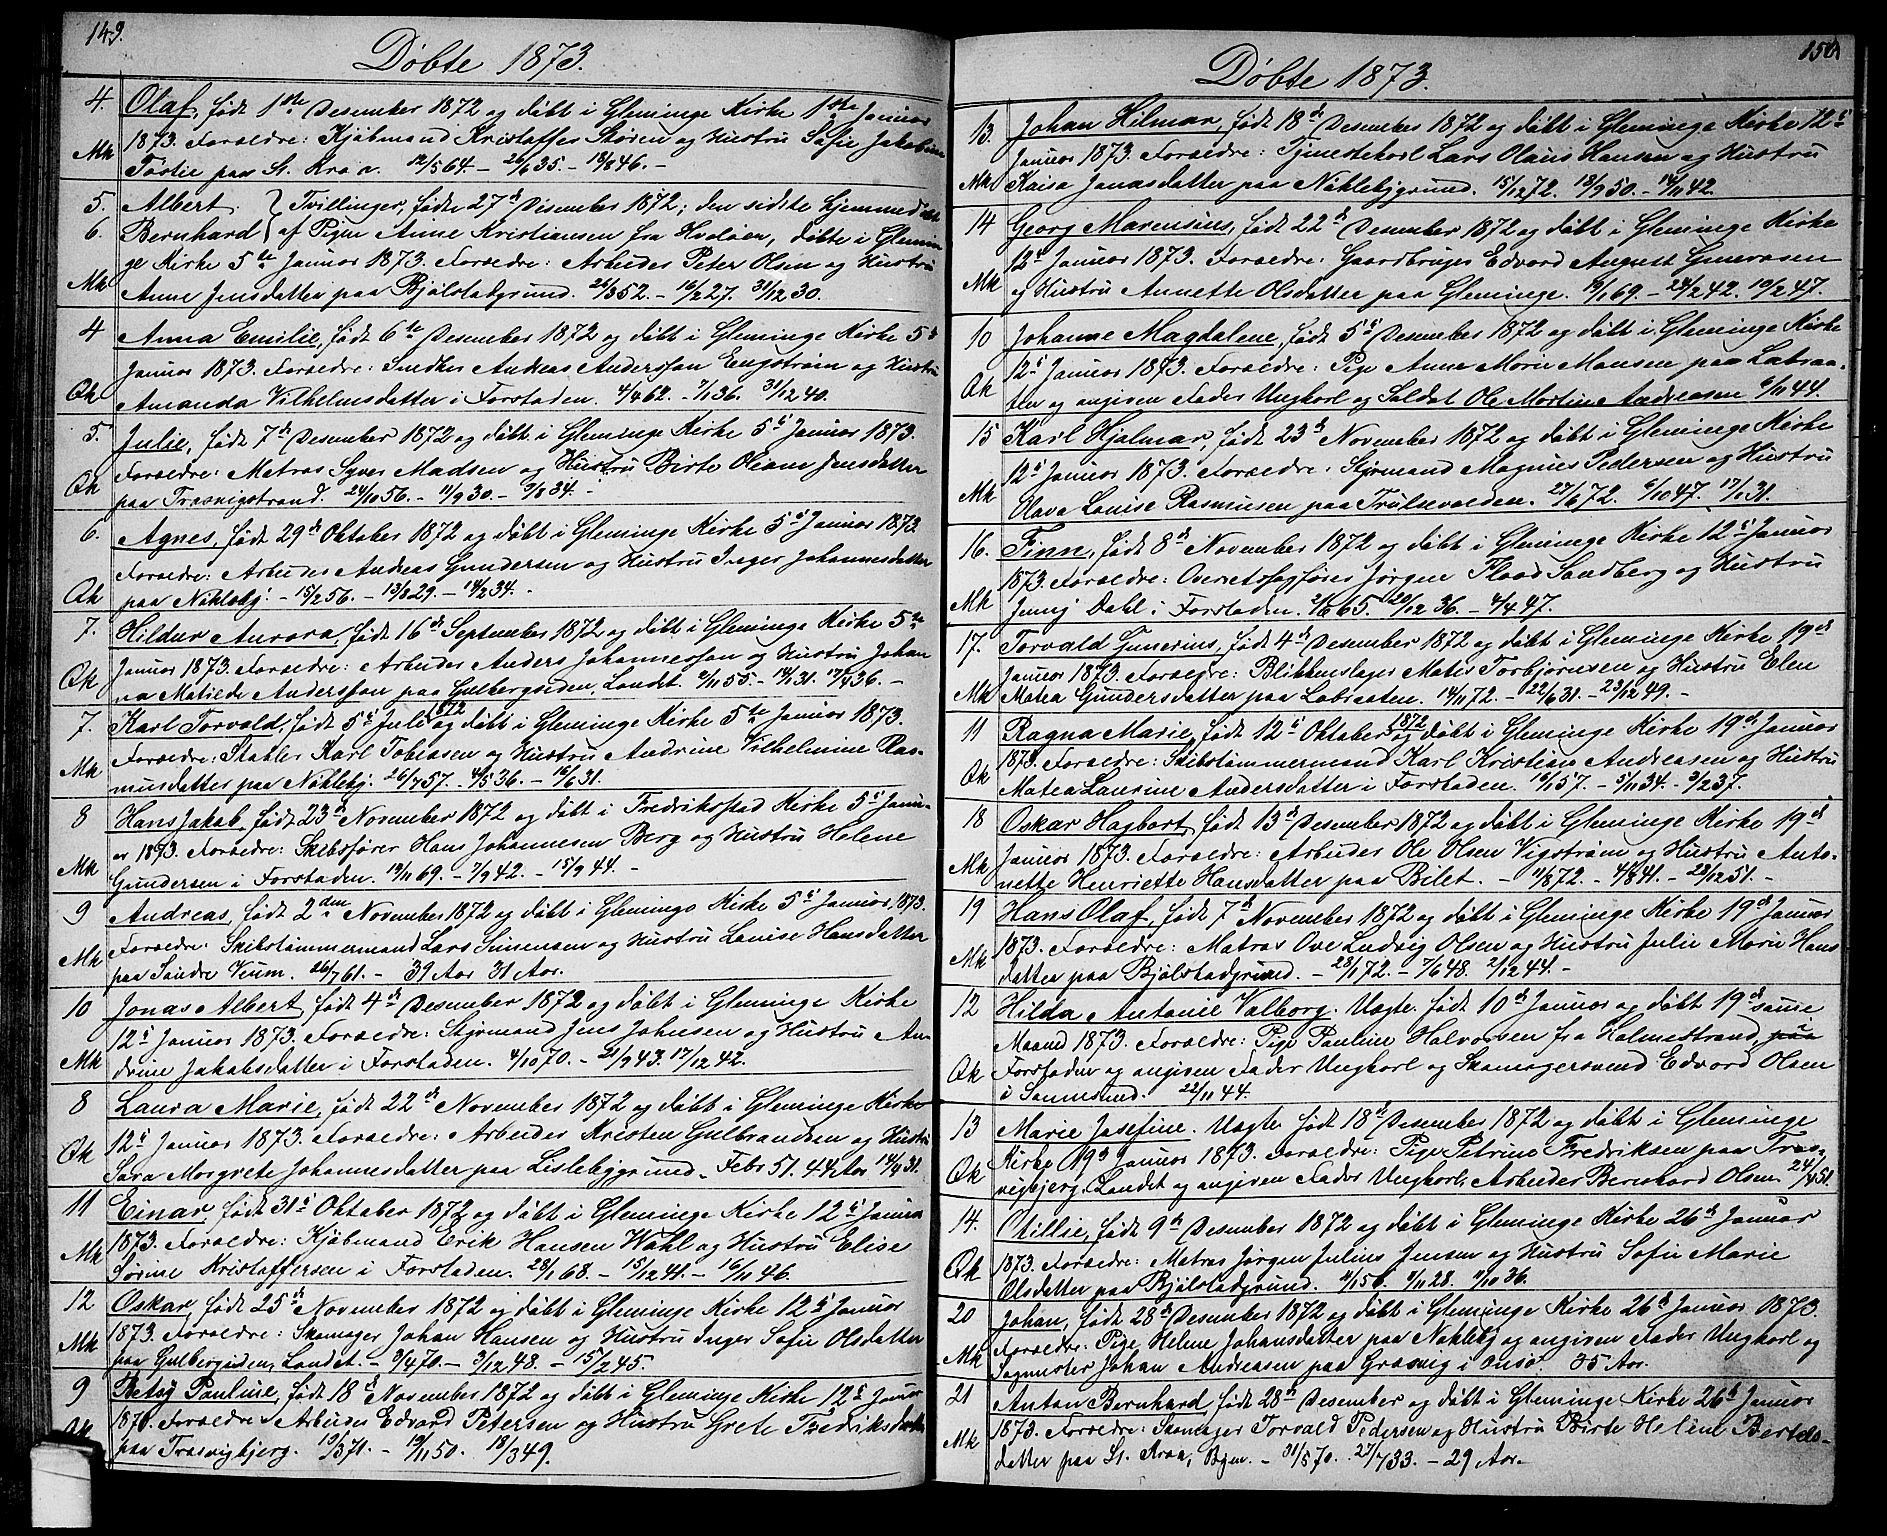 149.
Døbte 1873.
4. Olaf, født 1ste Desember 1872 og døbt i Glemminge Kirke 1ste Januar
1873. Foræledre: Kjøbmand Kristoffer Støsen og Hustru Sofie Jakobine
Mk Tostie paa St. Kraa. 12/5 64. - 26/6 35. - 18/8 46. -
5. Albert } Tvillinger, født 27de Desember 1872; den sidste hjemmedøbt
6. Bernhard } af Pigen Anne Kristiansen fra Hvaløen, døbte i Glemmin
ge Kirke 5te Januar 1873. Forældre: Arbeider Peter Olsen og Hustru
Mk Anne Jensdatter paa Bjølstadgrund. 24/3 52. - 16/2 27. 31/12 30.
4 Anna Emilie, født 6te Desember 1872 og døbt i Gleminge Kirke 5d
Januar 1873. Forældre: Snedker Andreas Anderssøn Engstrøm og Hustru
Qk Amanda Vilhelmsdatter i Forstaden. 4/4 62. - 7/1 36. 31/12 40.
5. Julie, født 7de Desember 1872 og døbt i Gleminge Kirke 5te Januar 1873.
Forældre: Matros Syver Madsen og Hustru Birte Oliane Jensdatter
Qk paa Trosvigstrand. 24/10 56. - 11/9 30. - 9/8 34. -
6. Agnes, født 29de Oktober 1872 og døbt i Gleminge Kirke 5te Januar 1873.
Forældre: Arbeider Andreas Gundersen og Hustru Inger Johannesdatter
Qk paa Nøkleby. - 15/2 56. - 13/8 29. - 14/2 34. -
7. Hildur Aurora, født 16de September 1872 og døbt i Gleminge Kirke 5te
Januar 1873. Forældre: Arbeider Anders Johannessøn og Hustru Johan
Qk na Matilde Anderssøn paa Gulbergsiden, Landet. 9/11 55. - 14/1 31. 17/4 36. -
7. Karl Torvald, født 5te Juli 1872 og døbt i Gleminge Kirke 5te Januar 1873.
Forældre: Stabler Karl Tobiasen og Hustru Andrine Vilhelmine Ras-
Mk musdatter paa Nøkleby. 26/7 57. 4/5 36. - 16/6 31.
8 Hans Jakob, født 23de November 1872 og døbt i Fredrikstad Kirke 5te Janu-
ar 1873. Forældre: Skibsfører Hans Johannesen Berg og Hustru Helene
Mk Gundersen i Forstaden. 19/11 69. - 7/9 42. - 15/9 44. -
9 Andreas, født 2den November 1872 og døbt i Gleminge Kirke 5te Januar, 1873.
Forældre: Skibstømmermand Lars Simensen og Hustru Lovise Hansdatter
Mk paa Søndre Veum. 26/7 61. - 39 Aar 31 Aar.
10 Jonas Albert, født 4de Desember 1872 og døbt i Gleminge Kirke
12te Januar 1873. Forældre: Styrmand Jens Johnsen og Hustru An-
Mk drine Jakobsdatter i Forstaden. 4/10 70. - 21/9 43. 17/12 42.
8 Laura Marie, født 22de November 1872 og døbt i Gleminge Kirke
12te Januar 1873. Forældre: Arbeider Kristen Gulbrandsen og Hustru
Qk Sara Morgrete Johannesdatter paa Lislebygrund. Febr 51. 44 Aar 14/4 31.
11 Einar, født 31te Oktober 1872 og døbt i Gleminge Kirke 12te Januar
1873. Forældre: Kjøbmand Erik Hansen Wahl og Hustru Elise
Mk Sørine Kristoffersen i Forstaden. 28/1 68. - 15/12 41. - 16/11 46.
12 Oskar, født 25de November 1872 og døbt i Gleminge Kirke 12te Januar
1873. Forældre: Skomager Johan Hansen og Hustru Inger Sofie Olsdatter
Mk paa Gulbergsiden, Landet. - 3/4 70. - 3/12 48. - 15/2 45.
9 Betsy Pauline, født 18de November 1872 og døbt i Gleminge Kirke 12te Januar
1873. Forældre: Arbeider Edvard Petersen og Hustru Grete Fredriksdatter
Qk paa Trosvigbjerg. 19/3 71. - 19/11 50. 18/3 49.
150.
Døbte 1873.
13. Johan Hilmar, født 18de Desember 1872 og døbt i Gleminge Kirke 12te
Januar 1873. Forældre: Tjenestekarl Lars Olaus Hansen og Hustru
Mk Kaisa Jonasdatter paa Nøklebygrund. 15/12 72. 18/9 50. - 14/11 42.
14 Georg Marensius, født 22de Desember 1872 og døbt i Gleminge Kirke
12te Januar 1873. Forældre: Gaardbruger Edvard August Gunersen
Mk og Hustru Annette Olsdatter paa Gleminge. 19/1 69. - 24/2 42. 10/2 47.
10 Johanne Magdalene, født 5te Desember 1872 og døbt i Gleminge Kirke
12te Januar 1873. Forældre: Pige Anne Marie Monsen paa Labraa-
Qk ten og angiven Fader Ungkarl og Soldat Ole Martin Andreasen 6/11 44.
15 Karl Hjalmar, født 23de November 1872 og døbt i Gleminge Kirke
12te Januar 1873. Forældre: Styrmand Magnus Pedersen og Hustru
Mk Olava Lovise Rasmusen paa Trulsevolden. 27/6 72. 6/10 47. 17/1 31.
16. Finn, født 8de November 1872 og døbt i Gleminge Kirke 12te Januar
1873. Forældre: Overretssagfører Jørgen Flood Sandberg og Hustru
Mk Jenny Dahl i Forstaden. 2/8 65. 20/12 36. - 4/4 47.
17. Torvald Gunerius, født 4de Desember 1872 og døbt i Gleminge Kirke 19de
Januar 1873. Forældre: Blikkenslager Matis Torbjørnsen og Hustru Elen
Mk Matea Gundersdatter paa Labraaten. 14/11 72. - 22/6 31. - 23/12 49. -
11 Ragna Marie, født 12te Oktober 1872 og døbt i Gleminge Kirke 19de Januar
1873. Forældre: Skibstømmermand Karl Kristian Andreasen og Hustru
Qk Matea Laurine Andersdatter i Forstaden. 16/1 57. - 5/11 34. - 9/2 37.
18 Oskar Hagbart, født 13de Desember 1872 og døbt i Gleminge Kirke 19de
Januar 1873. Forældre: Arbeider Ole Olsen Vigstrøm og Hustru Anto-
Mk nette Henriette Hansdatter paa Bilet. - 11/8 72. - 4/8 41. - 28/12 51. -
19 Hans Olaf, født 7de November 1872 og døbt i Gleminge Kirke 19de Januar
1873. Forældre: Matros Ove Ludvig Olsen og Hustru Julie Marie Hans
Mk datter paa Bjølstadgrund. - 28/1 72. - 7/6 48. 2/12 44. -
12 Hilda Antonie Valborg. Uægte. født 10de Januar og døbt 19de samme
Maaned 1873. Forældre: Pige Pauline Halvorsen fra Holmestrand, paa
Qk Forstaden og angiven Fader Ungkarl og Skomagersvend Edvard Olsen
i Sannesund. 22/11 44.
13 Marie Josefine. Uægte født 18de Desember 1872 og døbt i Gleminge
Kirke 19de Januar 1873. Forældre: Pige Petrine Fredriksen paa Tros-
Qk vigbjerg, Landet og angiven Fader Ungkarl, Arbeider Bernhard Olsen 24/4 51.
14. Otillie, født 9de Desember 1872 og døbt i Gleminge Kirke 26de Januar
1873. Forældre: Matros Jørgen Julius Jensen og Hustru Sofie Marie
Qk Olsdatter paa Bjølstadgrund. 4/1 56. 9/11 28. 11/10 36.
20 Johan, født 28de Desember 1872 og døbt i Gleminge Kirke 26de Januar 1873.
Forældre: Pige Helene Johansdatter paa Nøkleby og angiven Fader Ungkarl og
Mk Sagmester Johan Andreasen paa Græsvig i Onsø. 35 Aar.
21 Anton Bernhard, født 28de Desember og døbt i Gleminge Kirke 26de Januar
1873. Forældre: Skomager Torvald Pedersen og Hustru Birte Helene Bertels-
Mk datter paa St. Kraa, Byen. - 31/5 70. 27/7 33. - 29 Aar.